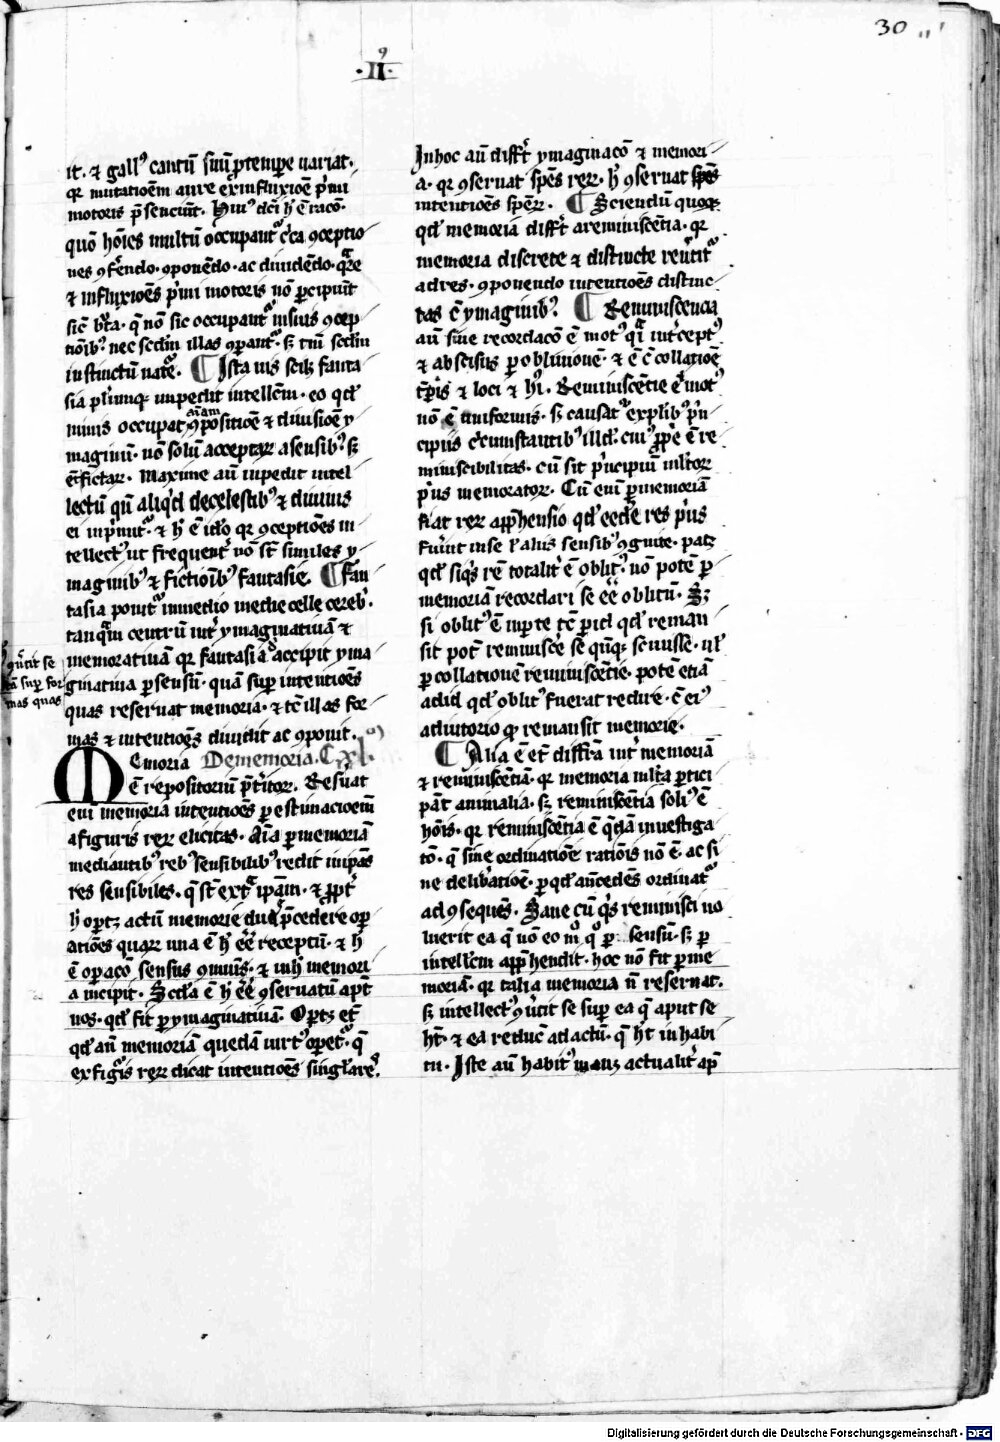 30
·II·
it· ⁊ gall⁹ cantū suū ꝓ tempe variat·
qr mutatioēm aure ex influxioē pͥmi
motoris p̄senciūt· Huiꝰ dc̄i hͨ ē racō·
quō hoīes multū occupant᷑ cͥca ꝯceptio
nes ꝯfe᷑ndo· ꝯponēdo· ac diuidēdo· qͣre
⁊ influxioēs pͥmi motoris nō ꝑcipiūt
sic̄ bͬta· q̄ nō sic occupant᷑ in suis ꝯcep
tiōibꝰ nec scd̄m illas oꝑant᷑· sꝫ tm̄ scd̄m
instinctū nat᷑e· ¶ Ista vis scilꝫ fanta
sia pl᷑imūqꝫ impedit intellc̄m· eo qd̓
nimis occupat᷑ ꝯpositiōe ⁊ diuisiōe y
aīam
maginū· nō solū acceptaꝝ a sensibꝰ sꝫ
⁊ fictaꝝ· Maxime aūt inpedit intel
lectū qn̄ aliqͥd de celestibꝰ ⁊ diuinis
ei inpͥmit᷑· ⁊ hͨ ē ideo qr ꝯceptiōes in
tellectꝰ ut frequent᷑ nō st̄ similes y
maginibꝰ ⁊ fictiōibꝰ fantasie· ¶ Fan
tasia ponit᷑ in medio medie celle cerebͥ·
tanqͣm centrū int᷑ ymaginatiuā ⁊
memoratiuā qr fantasia accipit yma
ginatiua ꝑ sensū· quā suꝑ intentiōes
quas reseruat memoria· ⁊ tc̄ illas for
mas ⁊ intentiōes diuidit ac ꝯponit·
ꝯūtit se
tā suꝑ for
mas quas
Memoria De memoria· C· xl·
ē repositoriū p̄t᷑itoꝝ· Resuat
eni memoria intentiōes ꝑ estimacioem̄
a figuris reꝝ elicitas· Aīa ꝑ memoriā
mediantibꝰ rebꝰ sensibilibꝰ redit in ip̄as
res sensibiles· q̄ st̄ extͣ ip̄am· ⁊ ꝓpt᷑
hͨ oportꝫ actū memorie p̄cedere oꝑ
atiōes quaꝝ una ē hͨ eē receptū· ⁊ hͨ
ē oꝑacō sensus ꝯmunis· ⁊ in hͨ memori
a incipit· Scd̄a ē hͨ eē ꝯseruatū apt̄
nos· qd̓ fit ꝑ ymaginatiuā· Oportꝫ et̄
qd̓ an̄ memoriā quedā virtꝰ oꝑet᷑· q̄
ex figͣis reꝝ elicat intentiōes singl᷑are᷑s·
In hoc aū diffͬt ymaginacō ⁊ memori
a· qr ꝯseruat spēs reꝝ· hͨ ꝯseruat spēs
intentiōes speꝝ· ¶ Sciendū quoqꝫ
qd̓ memoria diffͬt a reminiscētia· qr
memoria discrete ⁊ distincte reͬtit᷑
ad res· ꝯponendo intentiōes distinc
tas cͫ ymaginibꝰ ¶ Reminiscencia
aū siue recordacō ē motꝰ qͣ int᷑ceptꝰ
⁊ abscisus ꝑ obliuionē· ⁊ ē cͫ collatiōe
tꝑis ⁊ loci ⁊ hͥ· Reminiscētie eͬ motꝰ
nō ē vniformis· sꝫ causat᷑ ex plibꝰ pͥn
cipiis cͥcumstantibꝰ illd̓· cuiꝰ ꝓpͥe ē re
miniscibilitas· cū sit pͥncipiū mltoꝝ
pͥus memoratoꝝ· Cū eni ꝑ memoriā
fiat reꝝ app̄hensio qd̓ eedē res pͥus
fuͬint in se ł aliis sensibꝰ ꝯgnite· patꝫ
qd̓ siqͥs rē totalit᷑ ē oblitꝰ nō potē ꝑ
memoriā recordari se eē oblitū· Sꝫ
si oblitꝰ ē in ꝑte tc̄ ꝑ id qd̓ reman
sit pot̄ reminisce᷑ se qn̄qꝫ scuisse· ul᷑
ꝑ collationē reminiscētie· potē etiā
ad id qd̓ oblitꝰ fuerat redire· cͫ eiꝰ
adiutorio qd̓ remansit memorie·
¶ Alia ē et̄ diffrā int᷑ memoriā
⁊ reminiscētiā· qr memoria mlta ꝑtici
pāt animalia· sꝫ reminiscētia soliꝰ ē
hoīs· qr reminiscētia ē qͣdā inuestiga
tō· q̄ sine ordinatiōe ratiōis nō ē· ac si
ne deliͬatiōe· ꝑ qd̓ an̄cedēs ordinat᷑
ad ꝯsequēs· Sane cū qͥs reminisci vo
luerit ea q̄ nō eo mͦ qͦ ꝑ sensū· sꝫ ꝑ
intellc̄m app̄hendit· hoc nō fit ꝑ me
moriā· qr talia memoria n̄ reseruat·
sꝫ intellectꝰ ꝯͬtit se suꝑ ea q̄ aput se
ht̄· ⁊ ea reducͭ ad actū· q̄ ht̄ in habi
tu· Iste aū habitꝰ manꝫ actualit᷑ ap̄
Digitalisierung gefördert durch die Deutsche Forschungsgemeinschaft · DFG